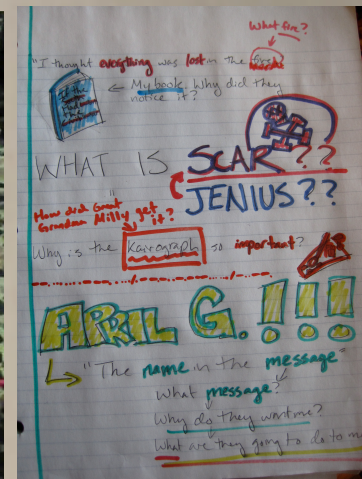 What fire?
"I thought everything was lost in the fire
← My book. Why did they
notice it?
WHAT IS SCAR??
JENIUS??
How did Great
Grandma Milly get
it?
Why is the Kairograph so important?
APRIL G.!!!
"The name in the message"
What message?
Why do they want me?
What are they going to do to m